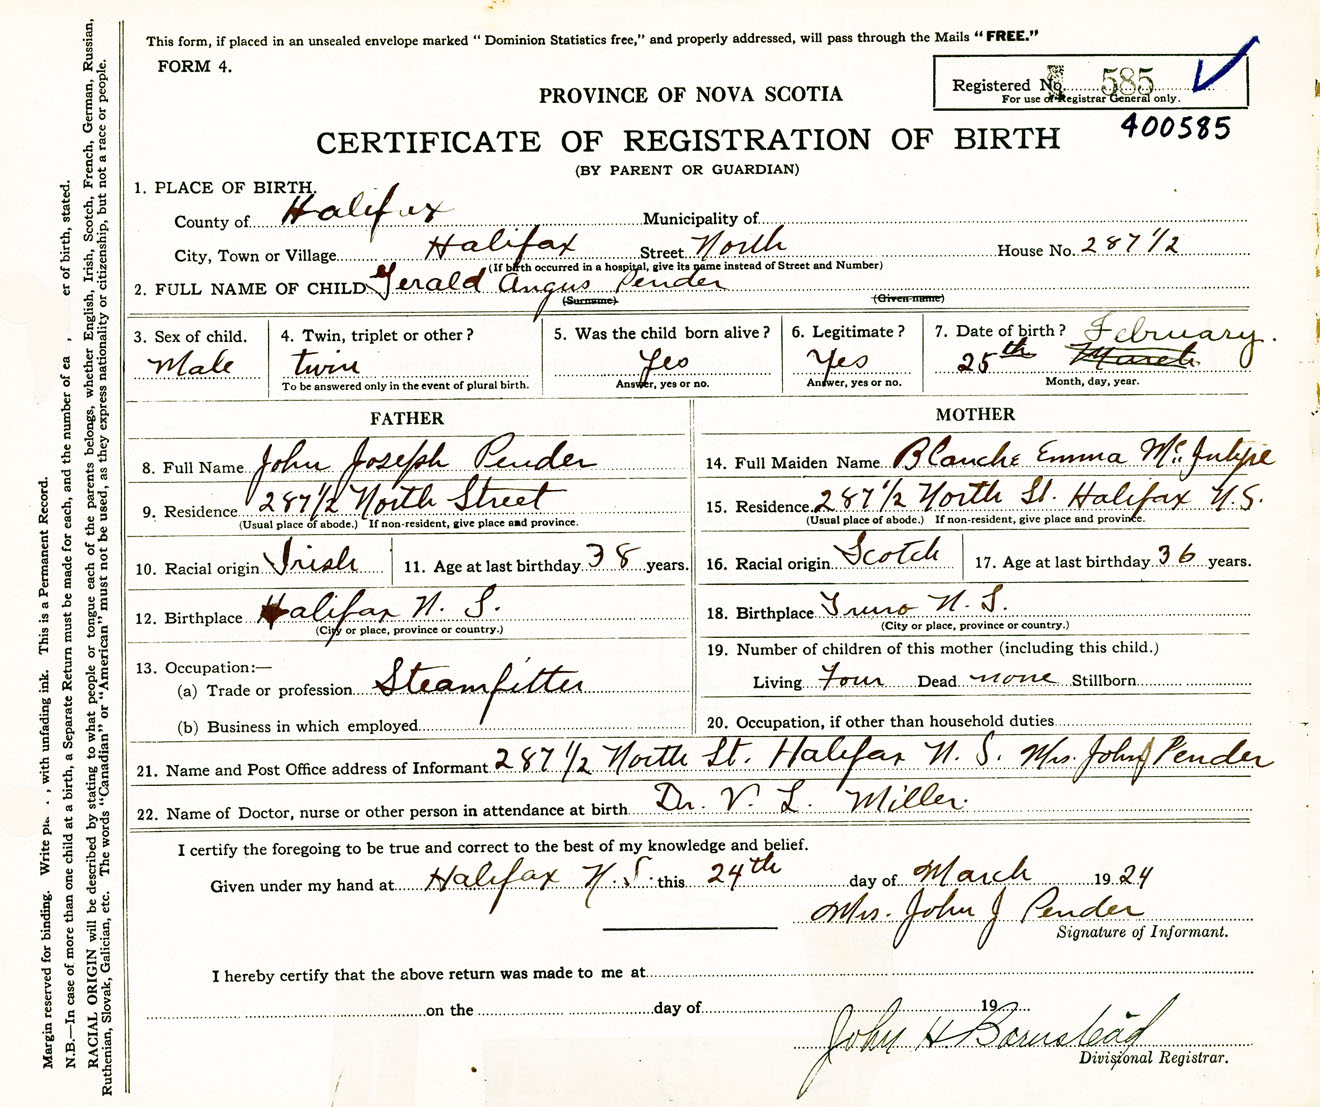 This form, if placed in an unsealed envelope marked “ Dominion Statistics free,” and properly addressed, will pass through the Mails “ FREE.”
FORM 4.
Registered No. 585
For use of Registrar General only.
400585
PROVINCE OF NOVA SCOTIA
CERTIFICATE OF REGISTRATION OF BIRTH
(BY PARENT OR GUARDIAN)
1. PLACE OF BIRTH.
County of Halifax Municipality of
City, Town or Village Halifax Street North House No. 287 1/2
(If birth occurred in a hospital, give its name instead of Street and Number)
2. FULL NAME OF CHILD Gerald Angus Pender
(Surname) (Given name)
3. Sex of child. Male
4. Twin, triplet or other ? twin
To be answered only in the event of plural birth.
5. Was the child born alive ? Yes
Answer, yes or no.
6. Legitimate ? Yes
Answer, yes or no.
7. Date of birth ? February.
25th March
Month, day, year.
FATHER
8. Full Name John Joseph Pender
9. Residence 287 1/2 North Street
(Usual place of abode.) If non-resident, give place and province.
10. Racial origin Irish 11. Age at last birthday 38 years.
12. Birthplace Halifax N. S.
(City or place, province or country.)
13. Occupation:—
(a) Trade or profession Steamfitter
(b) Business in which employed
MOTHER
14. Full Maiden Name Blanche Emma Mc. Intyre
15. Residence 287 1/2 North St. Halifax N.S.
(Usual place of abode.) If non-resident, give place and province.
16. Racial origin Scotch 17. Age at last birthday 36 years.
18. Birthplace Truro N. S.
(City or place, province or country.)
19. Number of children of this mother (including this child.)
Living Four Dead none Stillborn
20. Occupation, if other than household duties
21. Name and Post Office address of Informant 287 1/2 North St. Halifax N. S. Mrs. John J Pender
22. Name of Doctor, nurse or other person in attendance at birth Dr. V. L. Miller.
I certify the foregoing to be true and correct to the best of my knowledge and belief.
Given under my hand at Halifax N. S. this 24th day of March 1924
Mrs. John J Pender
Signature of Informant.
I hereby certify that the above return was made to me at
on the day of 19
John H. Barnstead
Divisional Registrar.
Margin reserved for binding. Write , with unfading ink. This is a Permanent Record.
N.B.—In case of more than one child at a birth, a Separate Return must be made for each, and the number of er of birth, stated.
RACIAL ORIGIN will be described by stating to what people or tongue each of the parents belongs, whether English, Irish, Scotch, French, German, Russian,
Ruthenian, Slovak, Galician, etc. The words “Canadian” or “American” must not be used, as they express nationality or citizenship, but not a race or people.